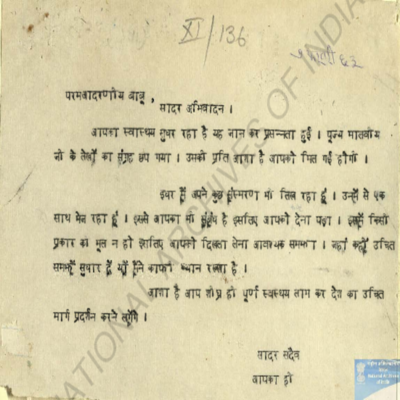 XI/136
परमआदरणीय बाबू,
सादर अभिवादन ।
आपका स्वास्थ्य सुधर रहा है यह जान कर प्रसन्नता हुई । पूज्य मालवीय
जी के लेखों का संग्रह छप गया । उसकी प्रति आशा है आपको मिल गई होगी ।
इधर मैं अपने कुछ संस्मरण भी लिख रहा हूँ । उन्हीं में से एक
साथ भेज रहा हूँ । इससे आपका भी संबंध है इसलिए आपको देना पड़ा । इसमें किसी
प्रकार की भूल न हो इसलिए आपको दिखला लेना आवश्यक समझा । जहाँ कहीं उचित
समझें सुधार दें यों मैंने काफी ध्यान रखा है ।
आशा है आप शीघ्र ही पूर्ण स्वास्थ्य लाभ कर देश का उचित
मार्ग प्रदर्शन करने लगेंगे ।
सादर सदैव
आपका ही
NATIONAL ARCHIVES OF INDIA